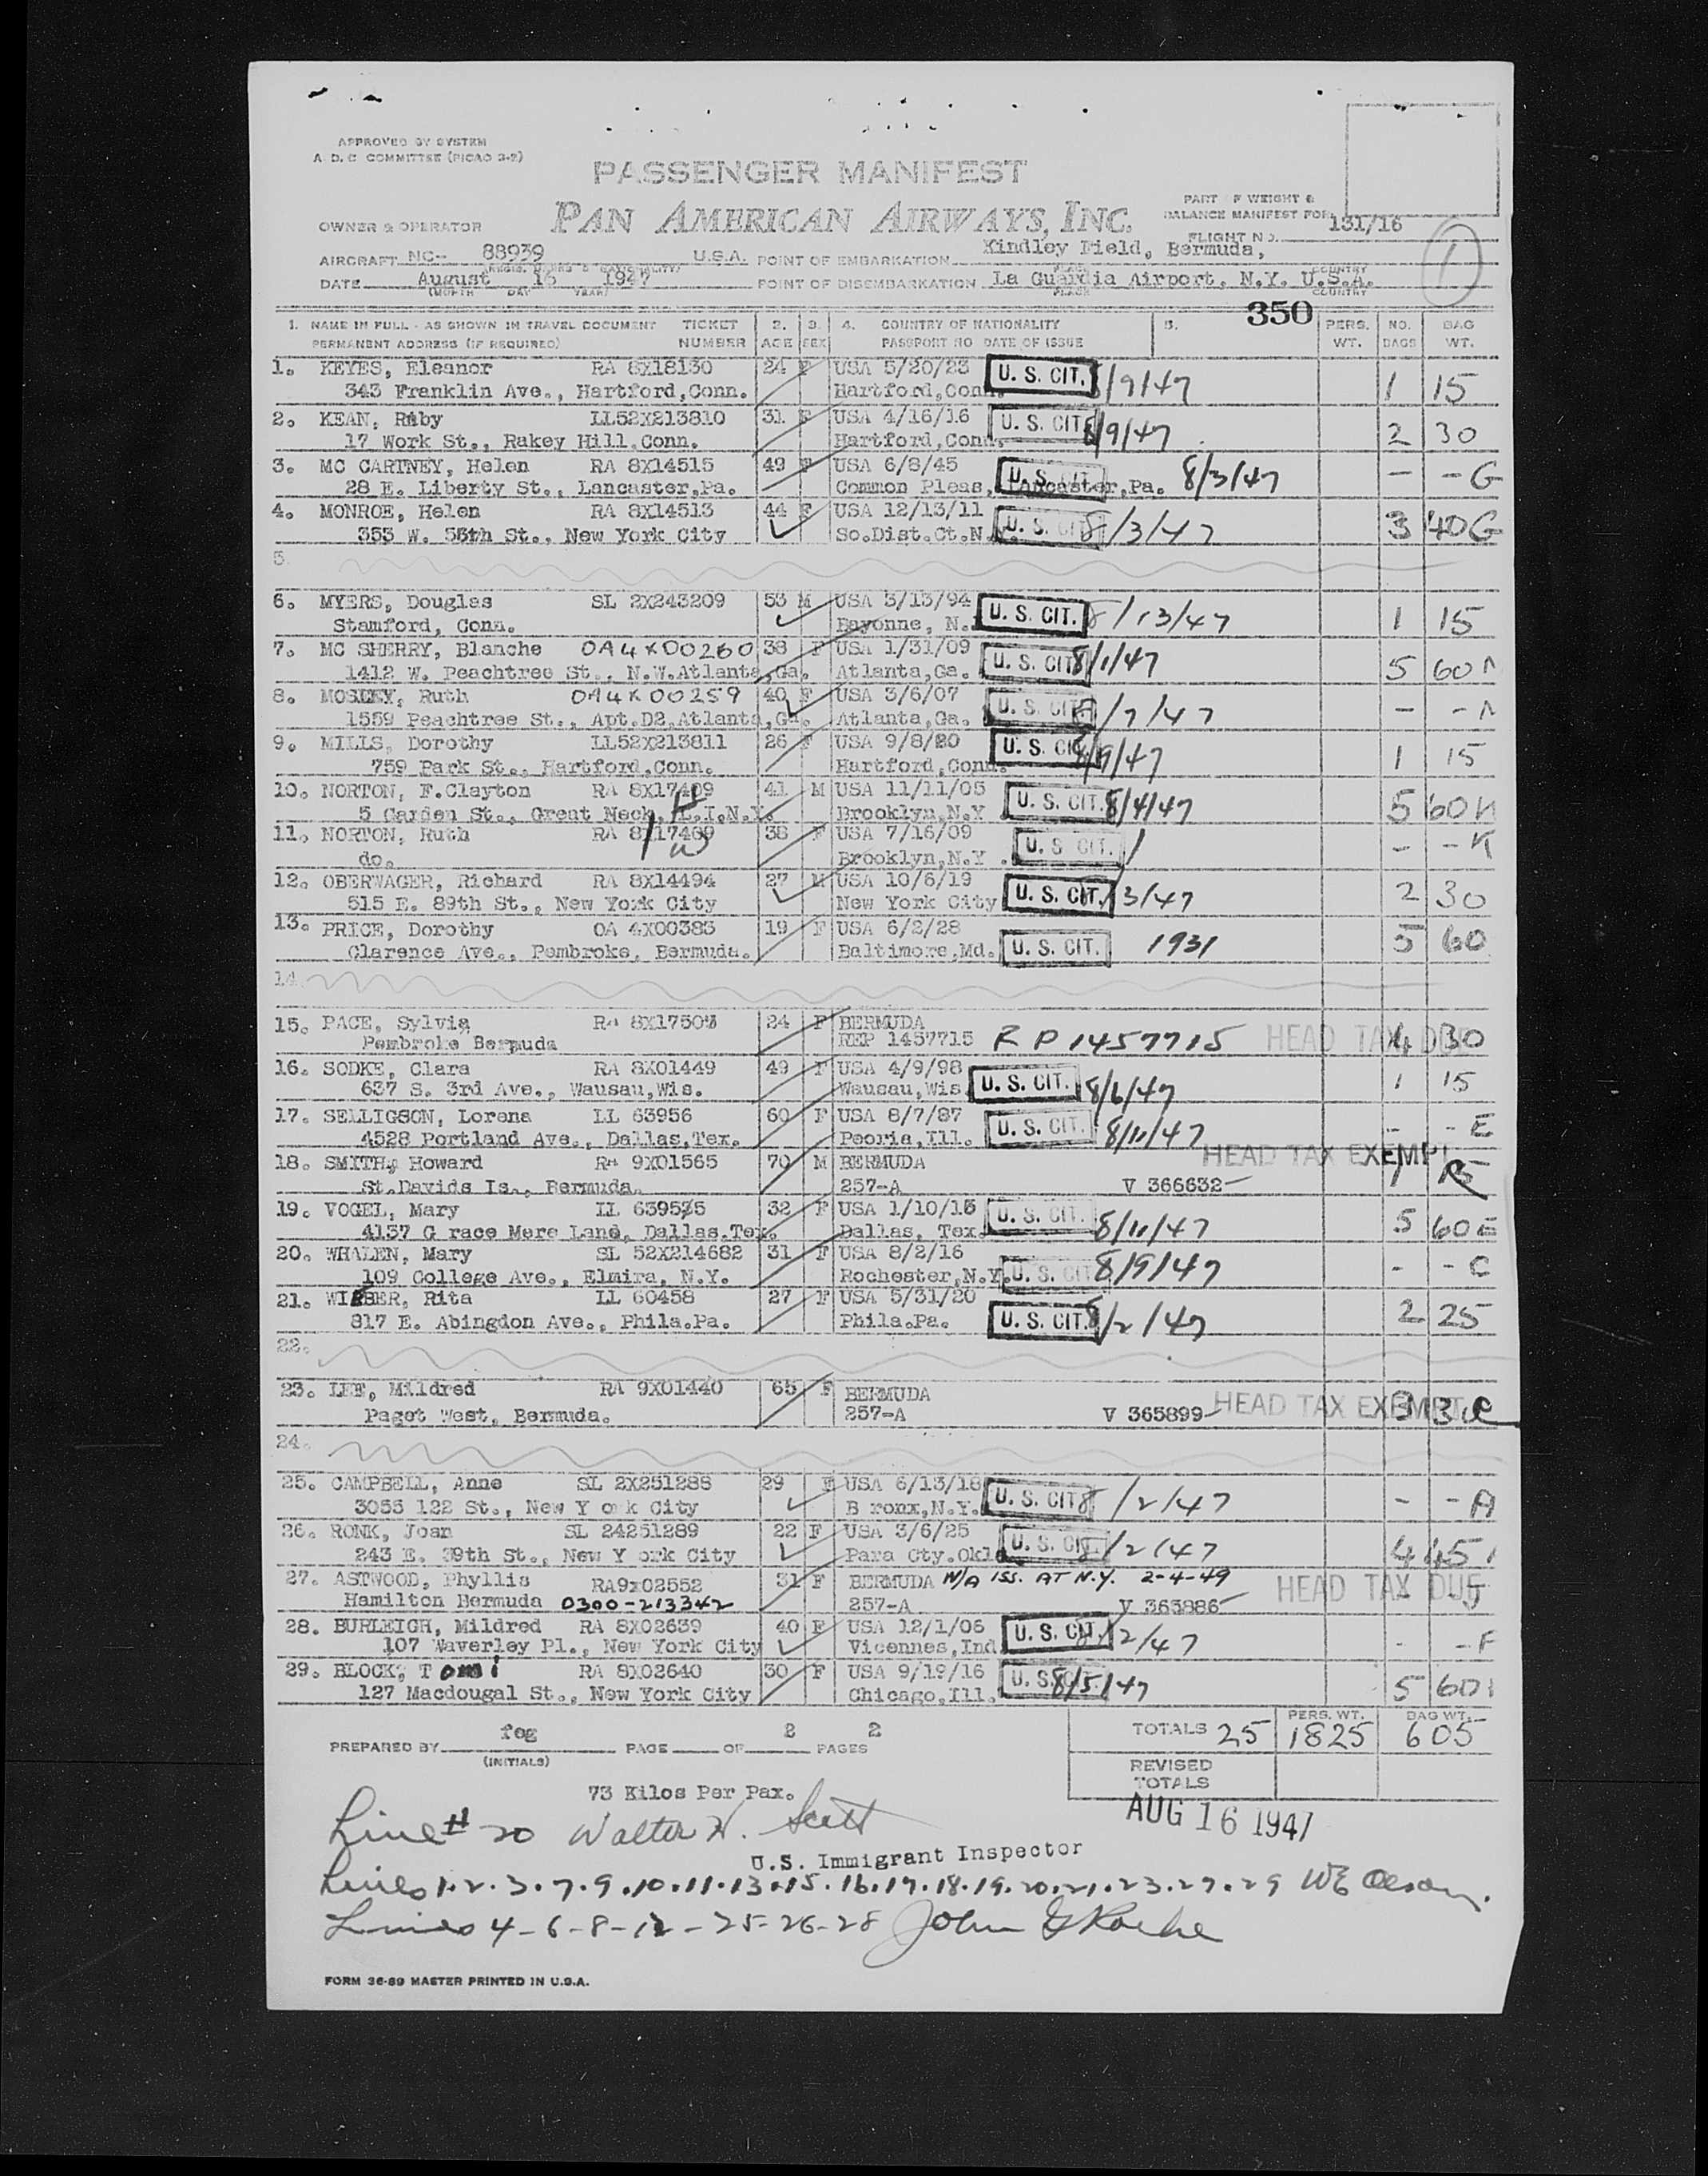 APPROVED BY SYSTEM
A. D. C. COMMITTEE (PICAO 3-2)
PASSENGER MANIFEST
PART OF WEIGHT &
BALANCE MANIFEST FOR
FLIGHT NO. 131/16
OWNER & OPERATOR PAN AMERICAN AIRWAYS, INC.
AIRCRAFT NC-- 88939 U.S.A. POINT OF EMBARKATION Kindley Field, Bermuda,
DATE August 16 1947 POINT OF DISEMBARKATION La Guardia Airport, N.Y. U.S.A.
(MONTH DAY YEAR) PLACE COUNTRY
1
350
1. NAME IN FULL - AS SHOWN IN TRAVEL DOCUMENT TICKET 2. 3. 4. COUNTRY OF NATIONALITY 5. PERS. NO. BAG
PERMANENT ADDRESS (IF REQUIRED) NUMBER AGE SEX PASSPORT NO DATE OF ISSUE WT. BAGS WT.
1. KEYES, Eleanor RA 8X18130 24 F USA 5/20/23 U. S. CIT. 8/9/47
343 Franklin Ave., Hartford,Conn. Hartford,Conn. 1 15
2. KEAN, Ruby LL52X213810 31 F USA 4/16/16 U. S. CIT. 8/9/47
17 Work St., Rakey Hill.Conn. Hartford,Conn. 2 30
3. MC CARTNEY, Helen RA 8X14515 49 F USA 6/8/45 U. S. CIT. 8/3/47 - - G
28 E. Liberty St., Lancaster,Pa. Common Pleas, Lancaster,Pa.
4. MONROE, Helen RA 8X14513 44 F USA 12/13/11 U. S. CIT. 8/3/47 3 40 G
353 W. 56th St., New York City So.Dist.Ct.N.Y.
5.
6. MYERS, Douglas SL 2X243209 53 M USA 3/13/94 U. S. CIT. 8/13/47 1 15
Stamford, Conn. Bayonne, N.J.
7. MC SHERRY, Blanche OA4X00260 38 F USA 1/31/09 U. S. CIT. 8/1/47 5 60
1412 W. Peachtree St., N.W.Atlanta,Ga. Atlanta,Ga.
8. MOSLEY, Ruth OA4X00259 40 F USA 3/6/07 U. S. CIT. 8/7/47 - -
1559 Peachtree St., Apt.D2,Atlanta,Ga. Atlanta,Ga.
9. MILLS, Dorothy LL52X213811 26 F USA 9/8/20 U. S. CIT. 8/9/47 1 15
759 Park St., Hartford,Conn. Hartford,Conn.
10. NORTON, F.Clayton RA 8X17409 41 M USA 11/11/05 U. S. CIT. 8/4/47 5 60
5 Garden St., Great Neck, L.I.N.Y. Brooklyn,N.Y
11. NORTON, Ruth RA 8X17409 38 F USA 7/16/09 U. S. CIT. - - K
do. Brooklyn,N.Y .
12. OBERWAGER, Richard RA 8X14494 27 M USA 10/6/19 U. S. CIT. 8/3/47 2 30
515 E. 89th St., New York City New York City
13. PRICE, Dorothy OA 4X00383 19 F USA 6/2/28 U. S. CIT. 1931 5 60
Clarence Ave., Pembroke, Bermuda. Baltimore,Md.
14.
15. PACE, Sylvia RA 8X17503 24 F BERMUDA HEAD TAX DUE 4 30
Pembroke Bermuda REP 1457715 R P 1457715
16. SODKE, Clara RA 8X01449 49 F USA 4/9/98 U. S. CIT. 8/6/47 1 15
637 S. 3rd Ave., Wausau,Wis. Wausau,Wis.
17. SELLIGSON, Lorena LL 63956 60 F USA 8/7/87 U. S. CIT. 8/11/47 - - E
4528 Portland Ave., Dallas,Tex. Peoria,Ill.
18. SMITH, Howard RA 9X01565 70 M BERMUDA HEAD TAX EXEMPT 1
St.Davids Is., Bermuda. 257-A V 366632
19. VOGEL, Mary LL 639555 32 F USA 1/10/15 U. S. CIT. 8/11/47 5 60 E
4137 G race Mere Land, Dallas.Tex. Dallas, Tex.
20. WHALEN, Mary SL 52X214682 31 F USA 8/2/16 8/9/47 - - C
109 College Ave., Elmira, N.Y. Rochester,N.Y. U. S. CIT.
21. WIEBER, Rita LL 60458 27 F USA 5/31/20 2 25
817 E. Abingdon Ave., Phila.Pa. Phila.Pa. U. S. CIT. 8/2/47
22.
23. LEE, Mildred RA 9X01440 65 F BERMUDA HEAD TAX EXEMPT 3
Paget West, Bermuda. 257-A V 365899
24.
25. CAMPBELL, Anne SL 2X251288 29 F USA 6/13/18 U. S. CIT. 8/2/47 - - A
3055 122 St., New Y ork City B ronx,N.Y.
26. RONK, Joan SL 24251289 22 F USA 3/6/25 U. S. CIT. 8/2/47 4 45
243 E. 39th St., New Y ork City Para Cty.Okla.
27. ASTWOOD, Phyllis RA9x02552 31 F BERMUDA N/A ISS. AT N.Y. 2-4-49 HEAD TAX DUE
Hamilton Bermuda 0300-213342 257-A V 365886
28. BURLEIGH, Mildred RA 8X02639 40 F USA 12/1/06 U. S. CIT. 8/2/47 - - F
107 Waverley Pl., New York City Vicennes,Ind
29. BLOCK, T omi RA 8X02640 30 F USA 9/19/16 U. S. CIT. 8/5/47 5 60
127 Macdougal St., New York City Chicago,Ill.
PREPARED BY feg PAGE OF 2 PAGES 2 TOTALS 25 PERS. WT. 1825 BAG WT. 605
(INITIALS) REVISED
TOTALS
73 Kilos Per Pax.
AUG 16 1947
Line # 20 Walter H. Scott
U.S. Immigrant Inspector
Lines 1.2.3.7.9.10.11.13.15.16.17.18.19.20.21.23.27.29 WE Olson.
Lines 4-6-8-12-25-26-28 John G Roche
FORM 36-89 MASTER PRINTED IN U.S.A.